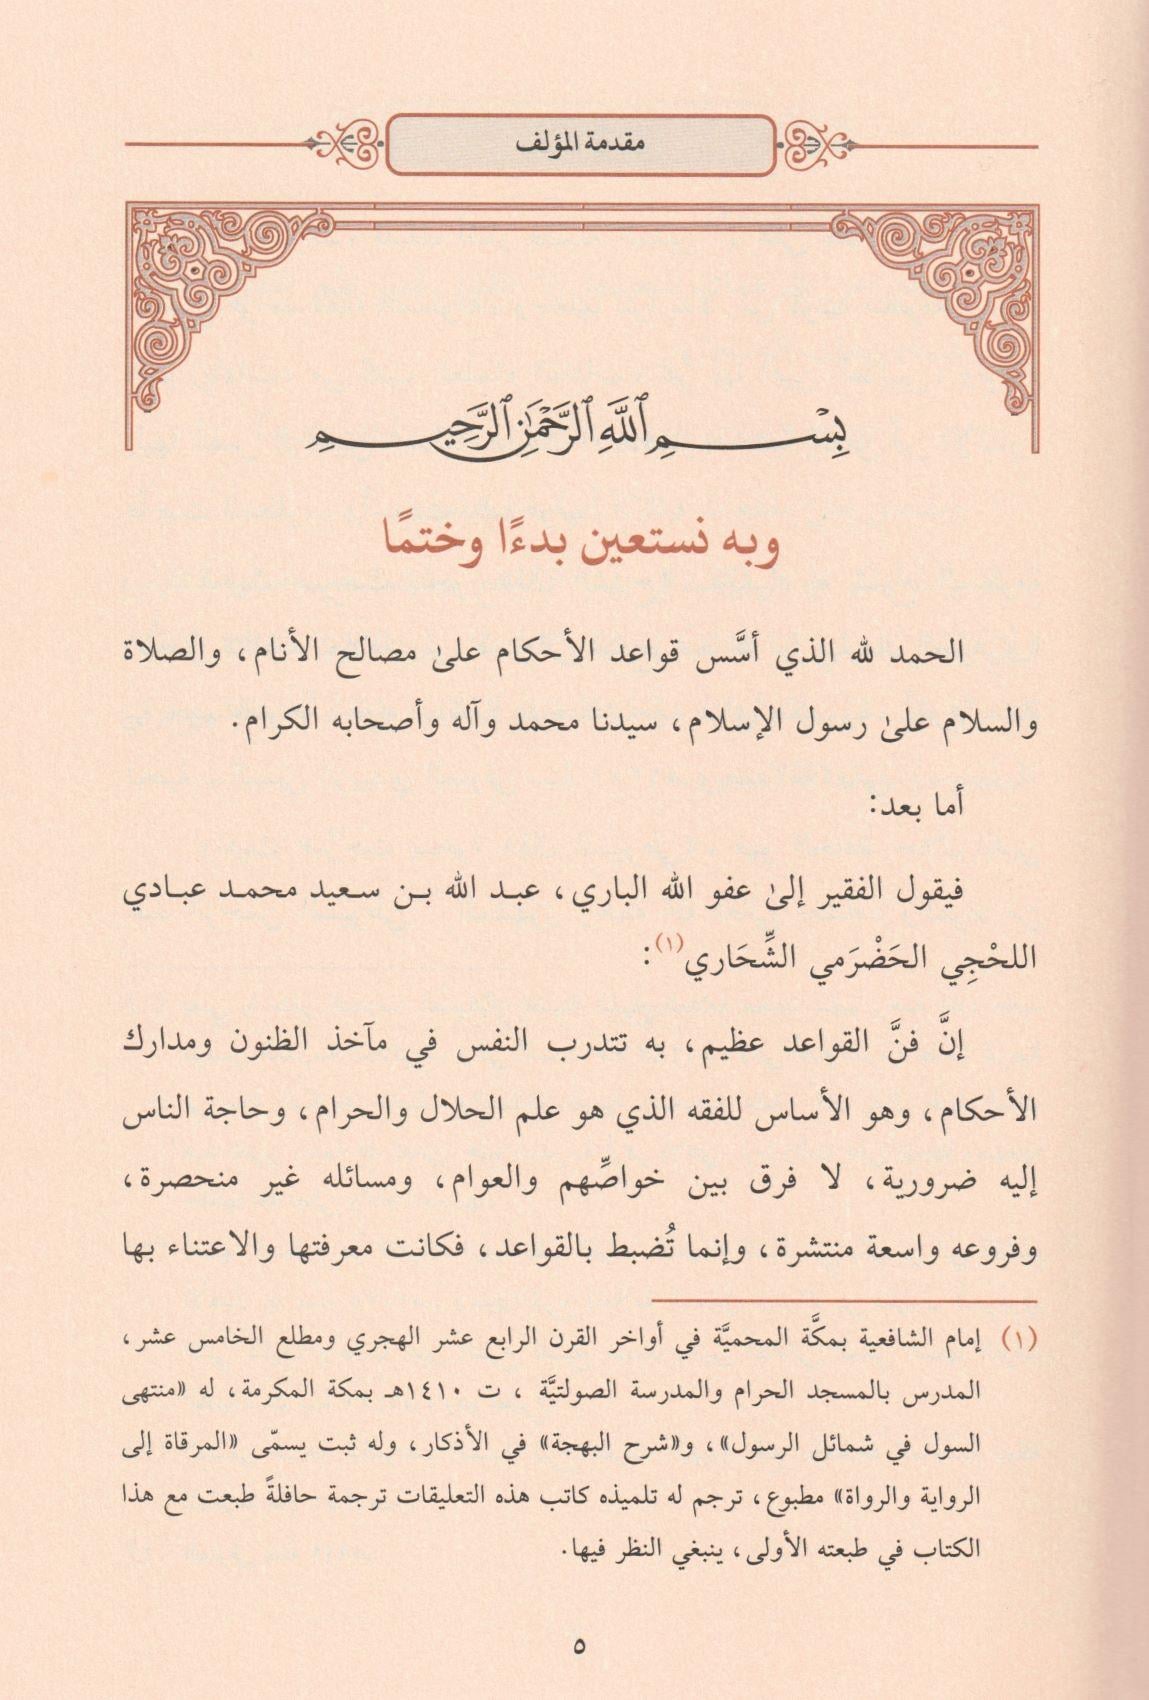 مقدمة المؤلف
بِسْمِ ٱللَّهِ ٱلرَّحْمَٰنِ ٱلرَّحِيمِ
وبه نستعين بدءًا وختمًا
الحمد لله الذي أسَّس قواعد الأحكام علىٰ مصالح الأنام، والصلاة
والسلام علىٰ رسول الإسلام، سيدنا محمد وآله وأصحابه الكرام.
أما بعد:
فيقول الفقير إلىٰ عفو الله الباري، عبد الله بن سعيد محمد عبادي
اللحْجِي الحَضْرَمي الشِّحَاري(١):
إنَّ فنَّ القواعد عظيم، به تتدرب النفس في مآخذ الظنون ومدارك
الأحكام، وهو الأساس للفقه الذي هو علم الحلال والحرام، وحاجة الناس
إليه ضرورية، لا فرق بين خواصِّهم والعوام، ومسائله غير منحصرة،
وفروعه واسعة منتشرة، وإنما تُضبط بالقواعد، فكانت معرفتها والاعتناء بها
(١) إمام الشافعية بمكَّة المحميَّة في أواخر القرن الرابع عشر الهجري ومطلع الخامس عشر،
المدرس بالمسجد الحرام والمدرسة الصولتيَّة ، ت ١٤١٠هـ بمكة المكرمة، له «منتهى
السول في شمائل الرسول»، و«شرح البهجة» في الأذكار، وله ثبت يسمّى «المرقاة إلى
الرواية والرواة» مطبوع، ترجم له تلميذه كاتب هذه التعليقات ترجمة حافلةً طبعت مع هذا
الكتاب في طبعته الأولى، ينبغي النظر فيها.
٥